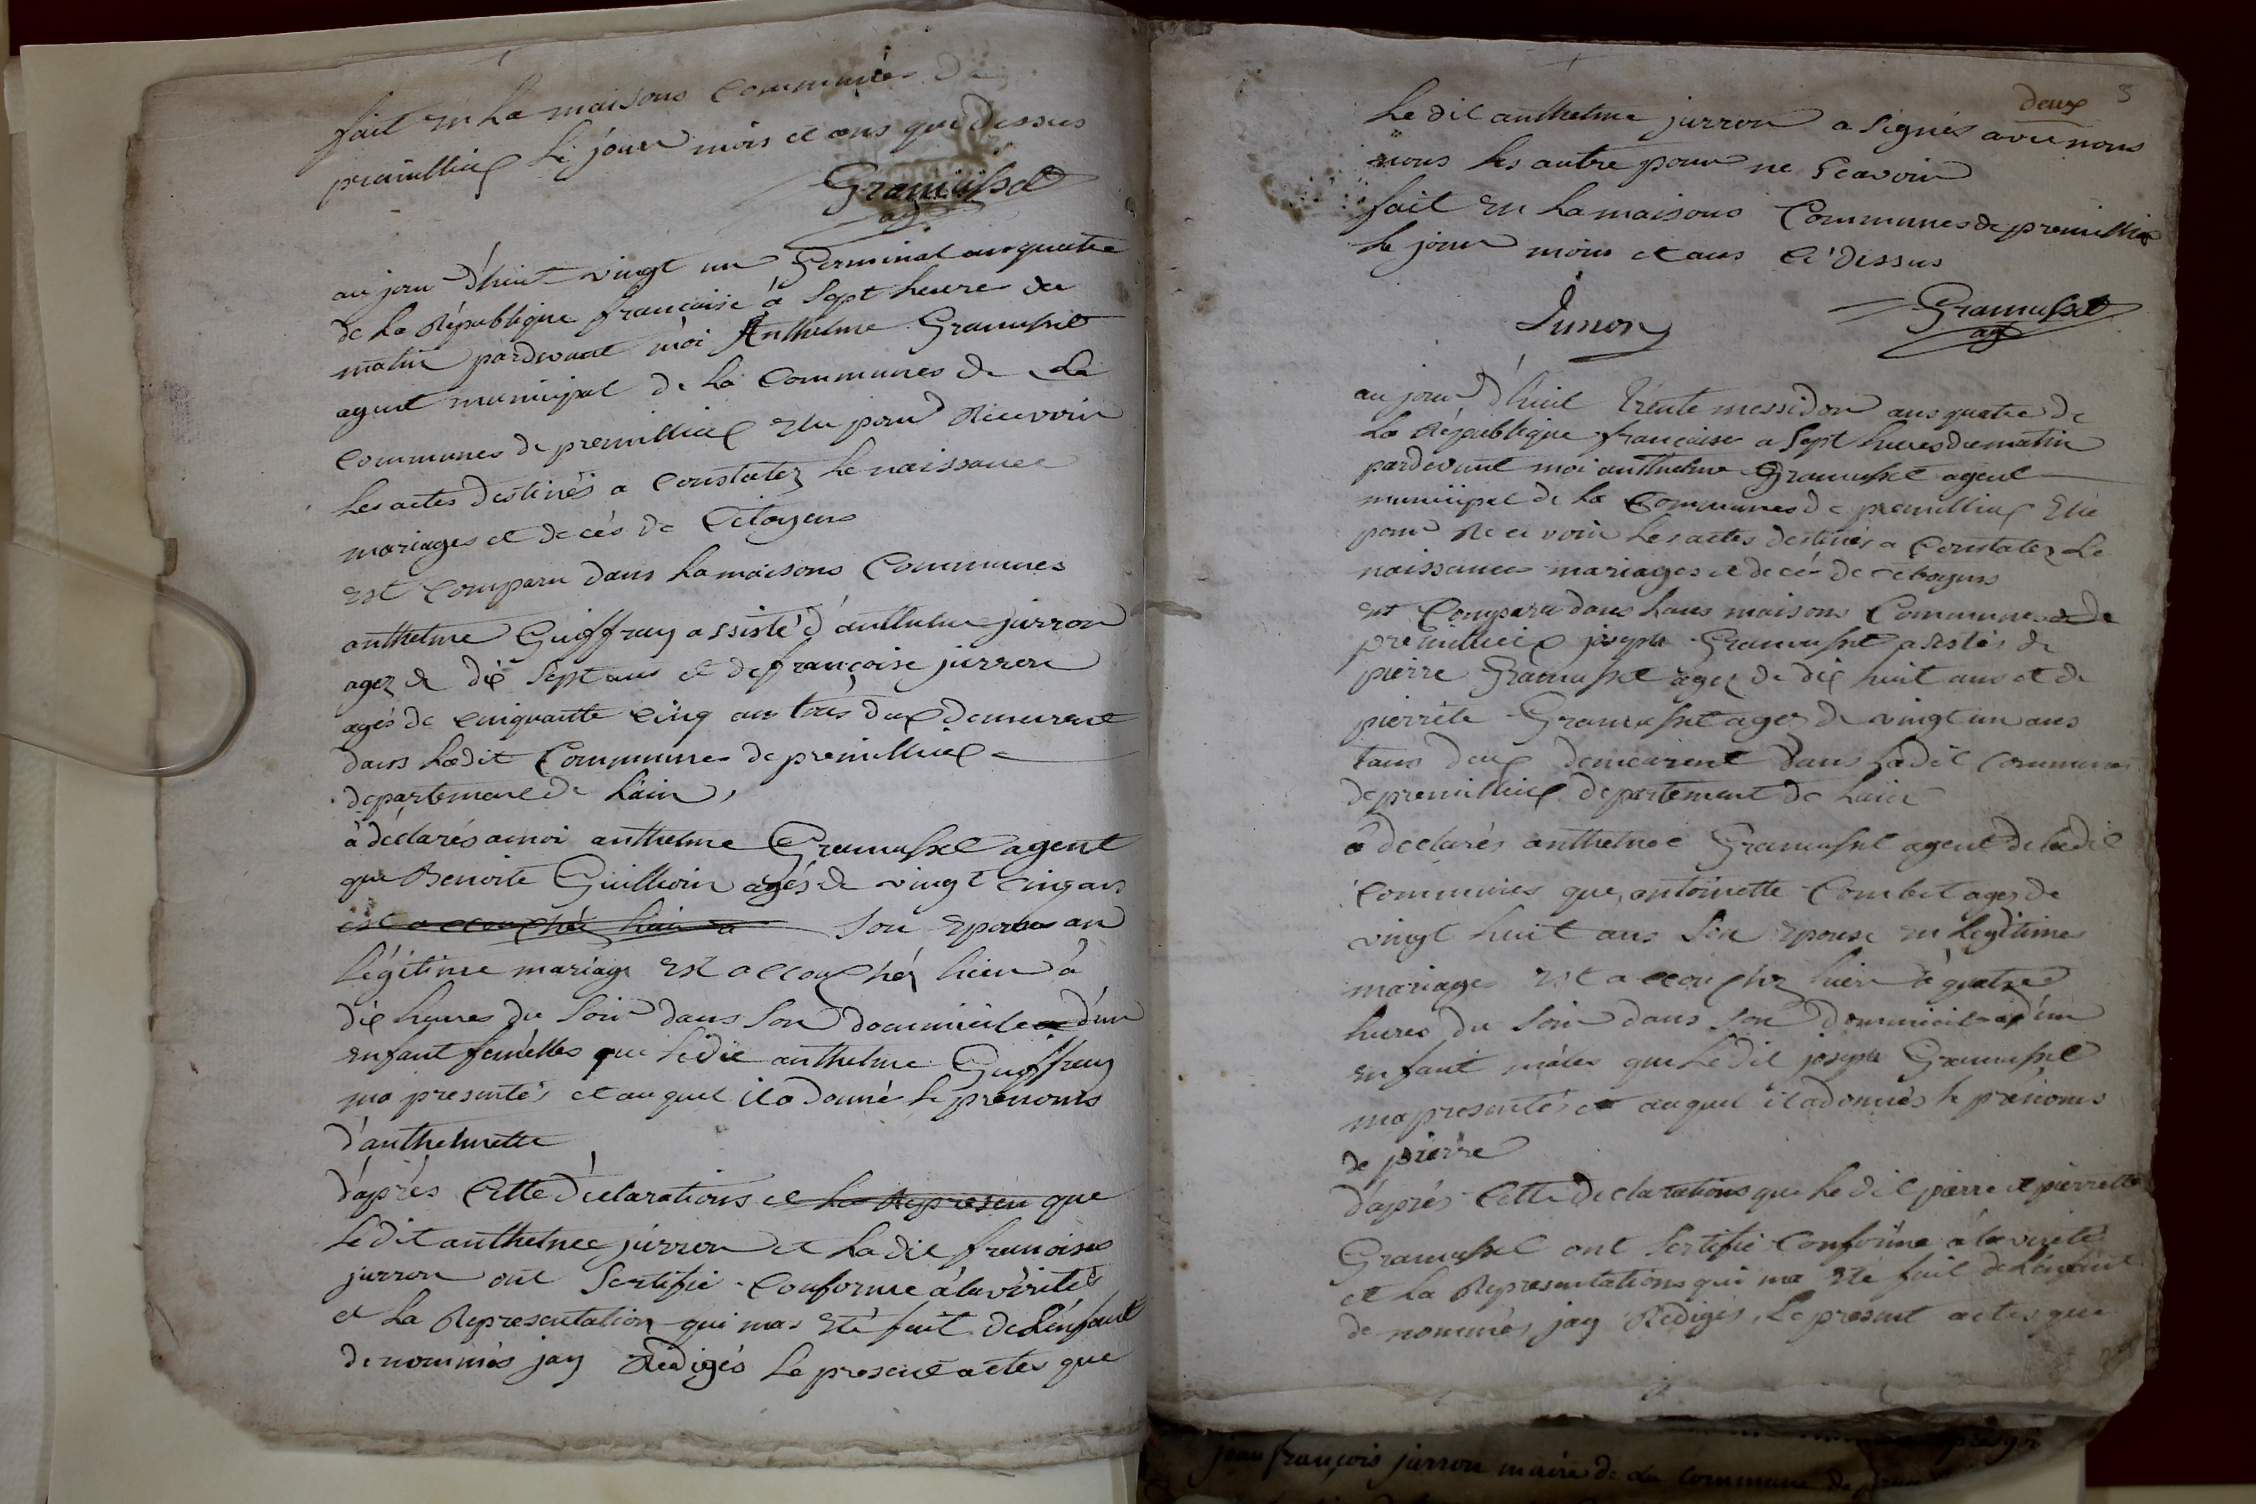 fait en La maisons Communes de
premillieux Le jour mois et ans que dessus
Gramusset
ag
au jour d'huit vingt un Germinal ans quatre
de La République française à Sept heures du
matin pardevant moi Anthelme Gramusset
agent municipal de La Communes de La
Communes de premillieux Elu pour Recevoir
Les actes destinés a Constatez Le naissance
mariages et decés de Citoyens
Est Comparu dans La maisons Communes
anthelme Guiffray assisté d'anthelme jurron
agez de dix Sept ans et de françoise jurron
agés de Cinquante Cinq ans tous deux demeurent
dans Ladit Communes de premillieux
departement de Lain,
à déclarés a moi anthelme Gramussel agent
que Benoite Guillioin agés de vingt Cinq ans
est accouchéz hier a Son Epouse an
Légitime mariage Est accouchéz hier à
dix heures du Soir dans Son domicile d'un
enfant femélles que Ledit anthelme Guiffray
ma presentés et auquel il a donné Le prénoms
d'anthelmette
d'après Cette déclarations et La Represen que
Ledit anthelme jurron et Ladit francoises
jurron ont Sertifié Conforme à la vérités
et La Representation qui mas Eté fait de L'enfant
denommés jay Rédigés Le present actes que
deux 3
Le dit anthelme jurron a Signés avec nous
nous Les autre pour ne Scavoir
fait en La maisons Communes de premillieux
Le jour moins et ans Ci dessus
Jurron
Gramusset
ag
au jour d'huit trente messidor ans quatre de
La République française a Sept heures du matin
pardevant moi anthelme Gramussel agent
municipal de La Communes de premillieux Elu
pour Recevoir Les actes destinés a Constatez Le
naissances mariages et decés de Citoyens
Est Comparu dans Lans maisons Communes de
premillieux joseph Gramussel assistés de
pierre Gramussel agez de dix huit ans et de
pierrete Gramussel agez de vingt un ans
tous deux demeurent dans Ladit Communes
de premillieux departement de Lain
a declarés anthelme Gramussel agent de Ladit
Communes que antoinette Combet agez de
vingt huit ans Son Epouse en Legitime
mariages Est accouchez hier à quatre
heures du Soir dans Son domicile d'un
enfant mâles que Ledit joseph Gramussel
ma presentés et auquel il a donnés Le prénoms
de pierre
d'après Cette declarations que Ledit pierre et pierrette
Gramussel ont Sertifié Conforme à la vérité
et La Representations qui ma Eté fait de L'enfant
de nommés jay Rédigés Le present actes que
jean françois jurron maire de La Commune de